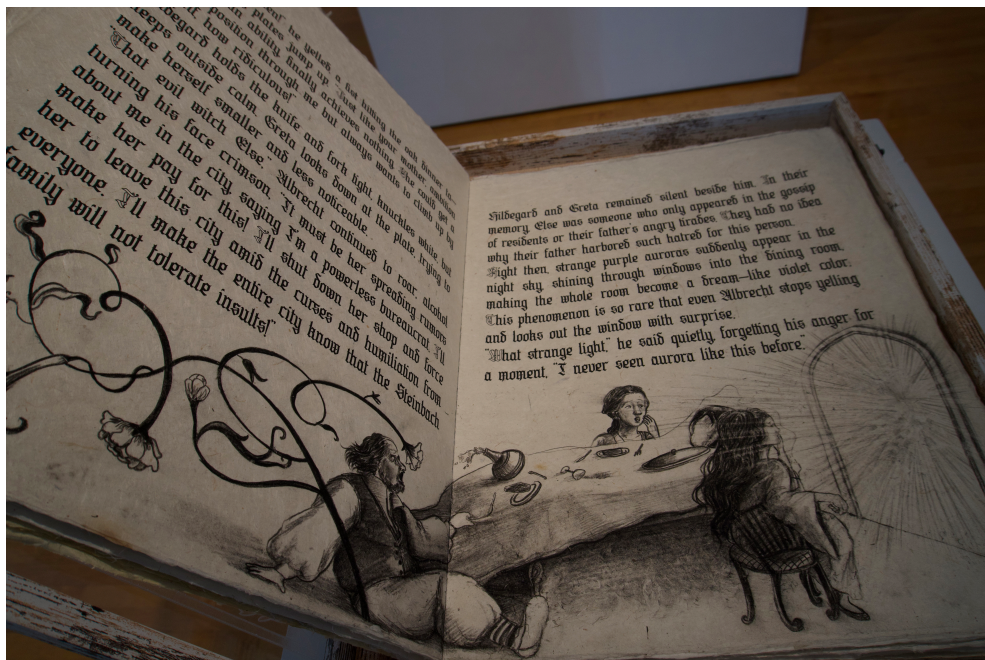 he yelled, a fist hitting the oak dinner
plates jump up. "Just like your mother, ambition
an ability, finally achieves nothing! She could get a
position through me but always wants to climb up by
how ridiculous!"
Hildegard holds the knife and fork tight, knuckles white, but
keeps outside calm. Greta looks down at the plate, trying to
make herself smaller and less noticeable.
"That evil witch Else." Albrecht continued to roar, alcohol
turning his face crimson. "It must be her spreading rumors
about me in the city, saying I'm a powerless bureaucrat. I'll
make her pay for this! I'll shut down her shop and force
her to leave this city amid the curses and humiliation from
everyone. I'll make the entire city know that the Steinbach
family will not tolerate insults!"
Hildegard and Greta remained silent beside him. In their
memory, Else was someone who only appeared in the gossip
of residents or their father's angry tirades. They had no idea
why their father harbored such hatred for this person.
Right then, strange purple auroras suddenly appear in the
night sky, shining through windows into the dining room,
making the whole room become a dream-like violet color.
This phenomenon is so rare that even Albrecht stops yelling
and looks out the window with surprise.
"What strange light," he said quietly, forgetting his anger for
a moment, "I never seen aurora like this before."